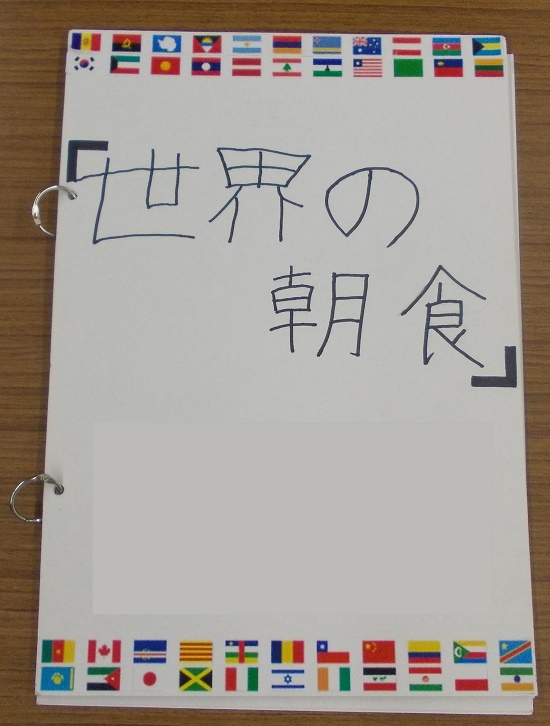 「世界の
朝食」